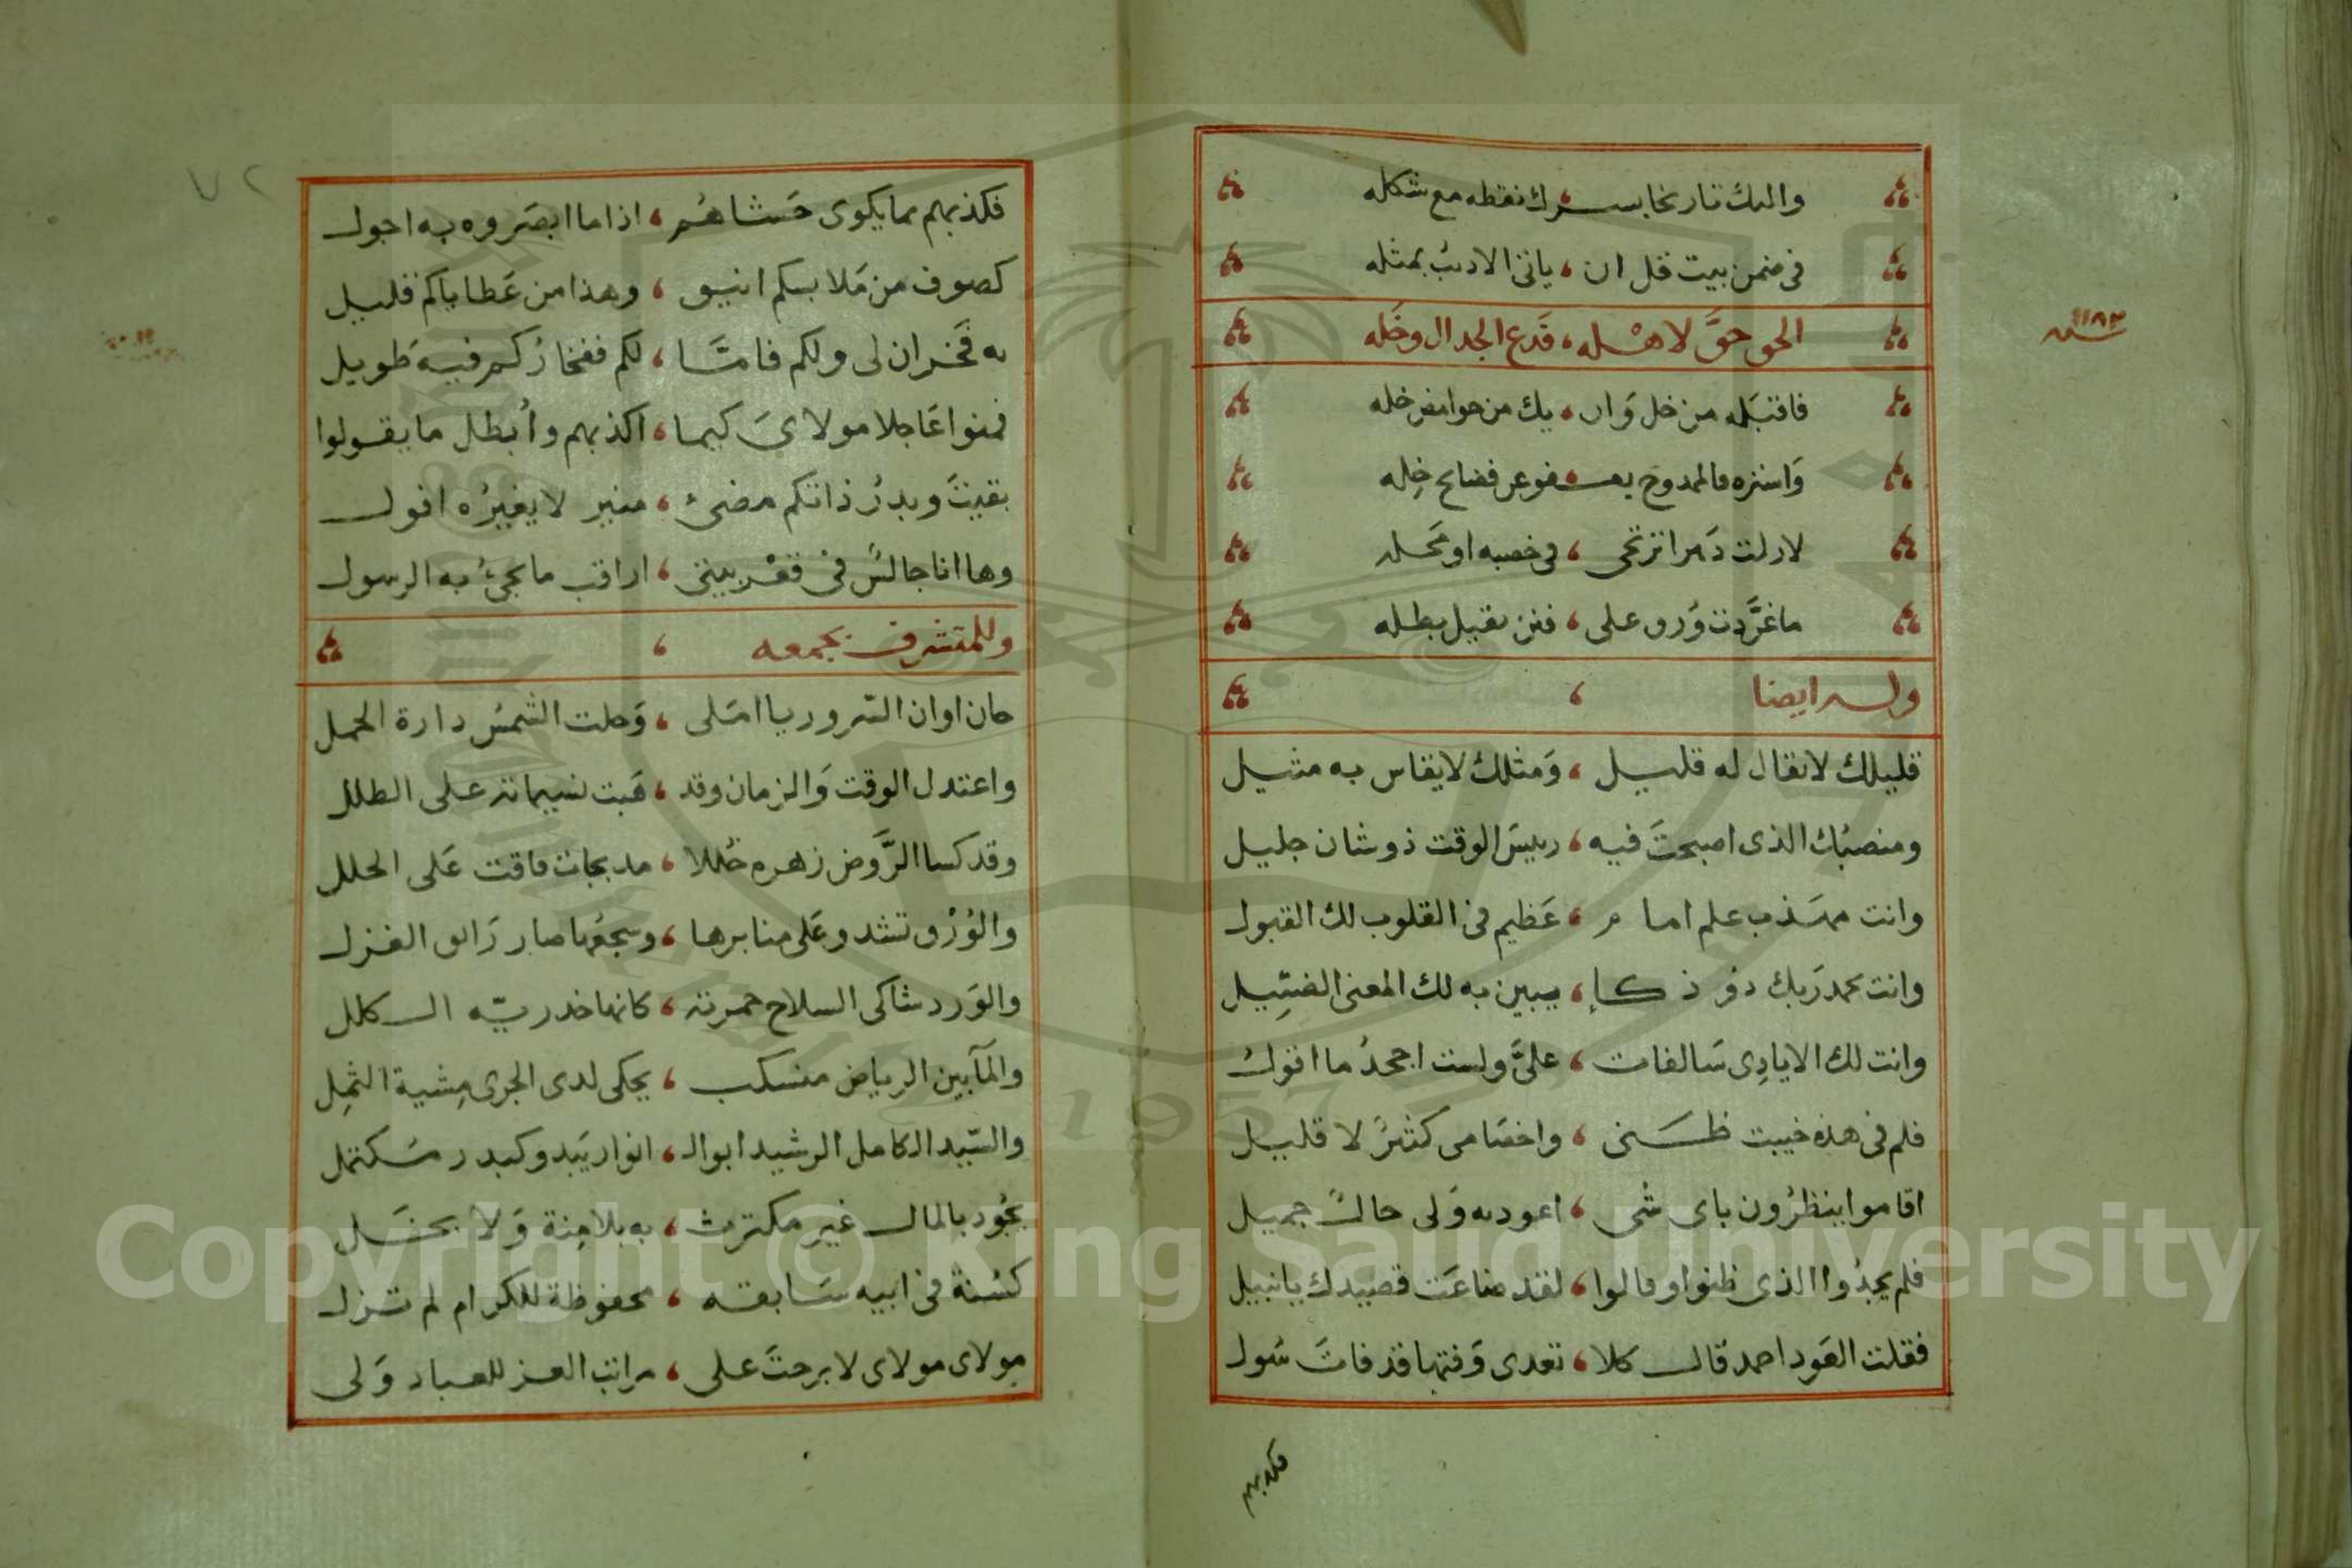 واليك تاريخا يسرك نقطه مع شكله
في ضمن بيت قل ان ، ياتي الاديب بمثله
الحق حقَّ لاهْله ، فَدع الجدال وخَله
سنه ١١٨٣
فاقتبَله من خل وَان ، يك من حوامض خله
وَاستره فالممدوح يعـفو عن فضايح خِله
لازلت دَهرا ترتجى ، في خصبه او محَله
ما غرَّدت وُرق على ، فنن نقيل بظله
وله ايضا
قليلك لا يقال له قليل ، وَمثلك لا يقاس به مثيل
ومنصبُك الذى اصبحتَ فيه ، رييسَ الوقت ذو شان جليل
وانت مهذب علم امام ، عَظيم في القلوب لك القبول
وانت بحمد رَبك ذو ذكاء ، يبين به لك المعنى الضئِيل
وانت لك الايادِى سَالفات ، علىَّ ولست اجحدُ ما اقولُ
فلم في هذه خيبت ظنى ، واخصَامى كثيرٌ لا قليل
اقاموا ينظرُون باى شى ، اعود به وَلى حالٌ جميل
فلم يجدُوا الذى ظنوا وقالوا ، لقد ضاعَت قصيدك يا نبيل
فقلت العَود احمد قال كلا ، تعدى وَقتها قد فاتَ سُول
فكذبهم
٧٢
فكذبهم بما يكوى حَشاهُم ، اذا ما ابصَروه به اجول
كصوف من مَلابسكم انيق ، وهذا من عَطاياكم قليل
به فَخران لى ولكم فامَّا ، لكم ففخاركم فيه طويل
فمنوا عَاجلا مولاىَ كيما ، اكذبهم وأبطل ما يقولوا
بقيتَ وبدرُ ذاتكم مضئ ، منير لا يغيرُه افول
وها انا جالسٌ في قعْر بيتى ، اراقب ما يجئُ به الرسول
وللمتشرف بجمعه
حان اوان السّرور يا امَلى ، وَحلت الشمسُ دارة الحمل
واعتدل الوقت وَالزمان وقد ، هَبت نسيماته على الطلل
وقد كسا الرَّوض زهره حُللا ، مدبجات فاقت عَلى الحلل
والوُرْق تشدو عَلى منابرها ، وسجعُها صار رَائق الغزل
والوَرد شاكى السلاح حمرته ، كانها خد ربّه الكلل
والمآبين الرياض منسكب ، يحكى لدى الجرى مِشية الثمِل
والسّيد الكامل الرشيد ابو الـ ، انوار يَبدو كبدر مكتمل
يجُود بالمال غير مكترث ، به بلا مِنة وَلا بخَل
كسُنة في ابيه سَابقه ، محفوظة للكرام لم تزل
مولاى مولاى لا برحتَ على ، مراتب العز للعباد وَلى